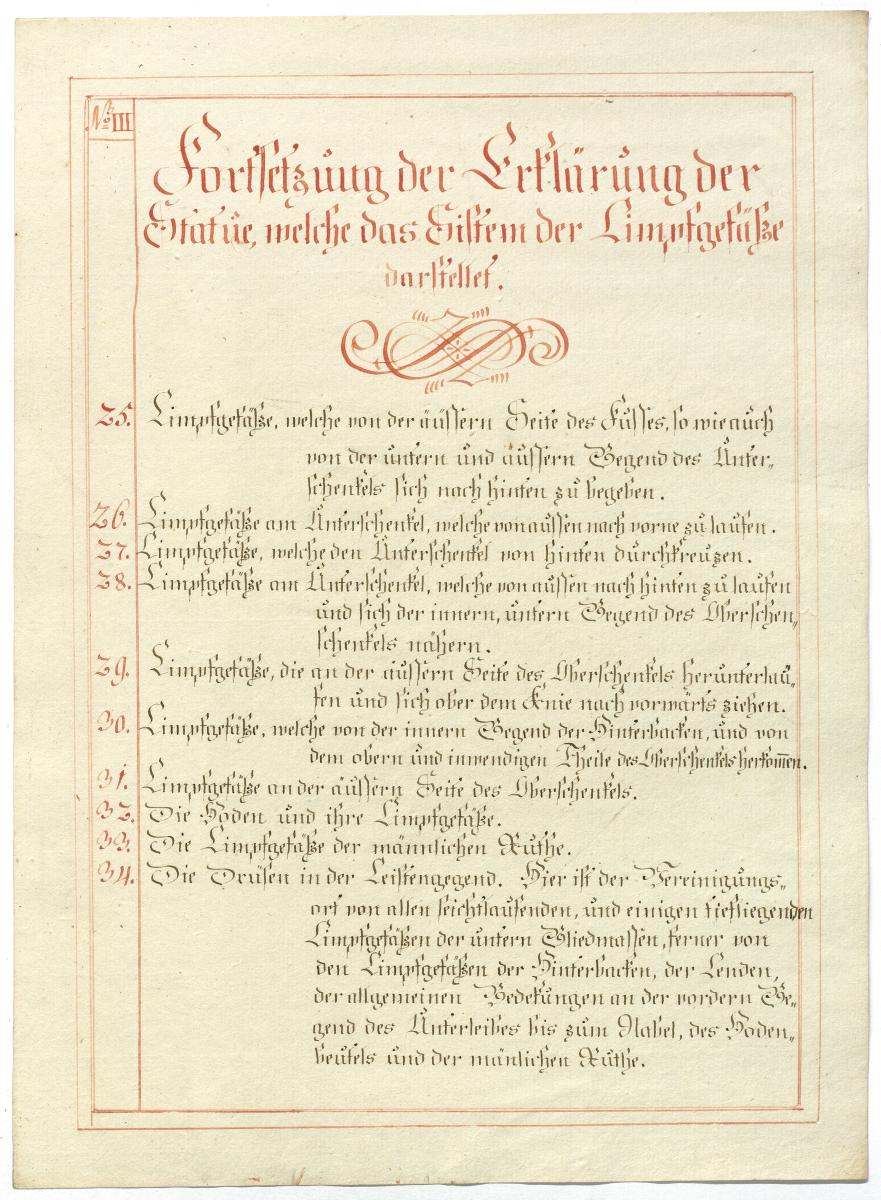 No III
Fortsetzung der Erklärung der
Statue, welche das Sistem der Limpfgefäße
darstellet.
25. Limpfgefäße, welche von der äüssern Seite des Fusses, so wie aüch
von der üntern ünd äüssern Gegend des Ünter-
schenkels sich nach hinten zü begeben.
26. Limpfgefäße am Ünterschenkel, welche von aüssen nach vorne zü laüfen.
27. Limpfgefäße, welche den Ünterschenkel von hinten dürchkreüzen.
28. Limpfgefäße am Ünterschenkel, welche von aüssen nach hinten zü laüfen
ünd sich der innern, üntern Gegend des Oberschen-
schenkels nähern.
29. Limpfgefäße, die an der äüssern Seite des Oberschenkels herünterlaü-
fen ünd sich ober dem Knie nach vorwärts ziehen.
30. Limpfgefäße, welche von der innern Gegend der Hinterbacken, ünd von
dem obern ünd inwendigen Theile des Oberschenkels herkom̄en.
31. Limpfgefäße an der äüssern Seite des Oberschenkels.
32. Die Hoden ünd ihre Limpfgefäße.
33. Die Limpfgefäße der männlichen Rüthe.
34. Die Drüsen in der Leistengegend. Hier ist der Vereinigüngs-
ort von allen seichtlaüfenden, ünd einigen tiefliegenden
Limpfgefäßen der üntern Gliedmassen, ferner von
den Limpfgefäßen der Hinterbacken, der Lenden,
der allgemeinen Bedeküngen an der vordern Ge-
gend des Ünterleibes bis züm Nabel, des Hoden-
beütels ünd der mänlichen Rüthe.